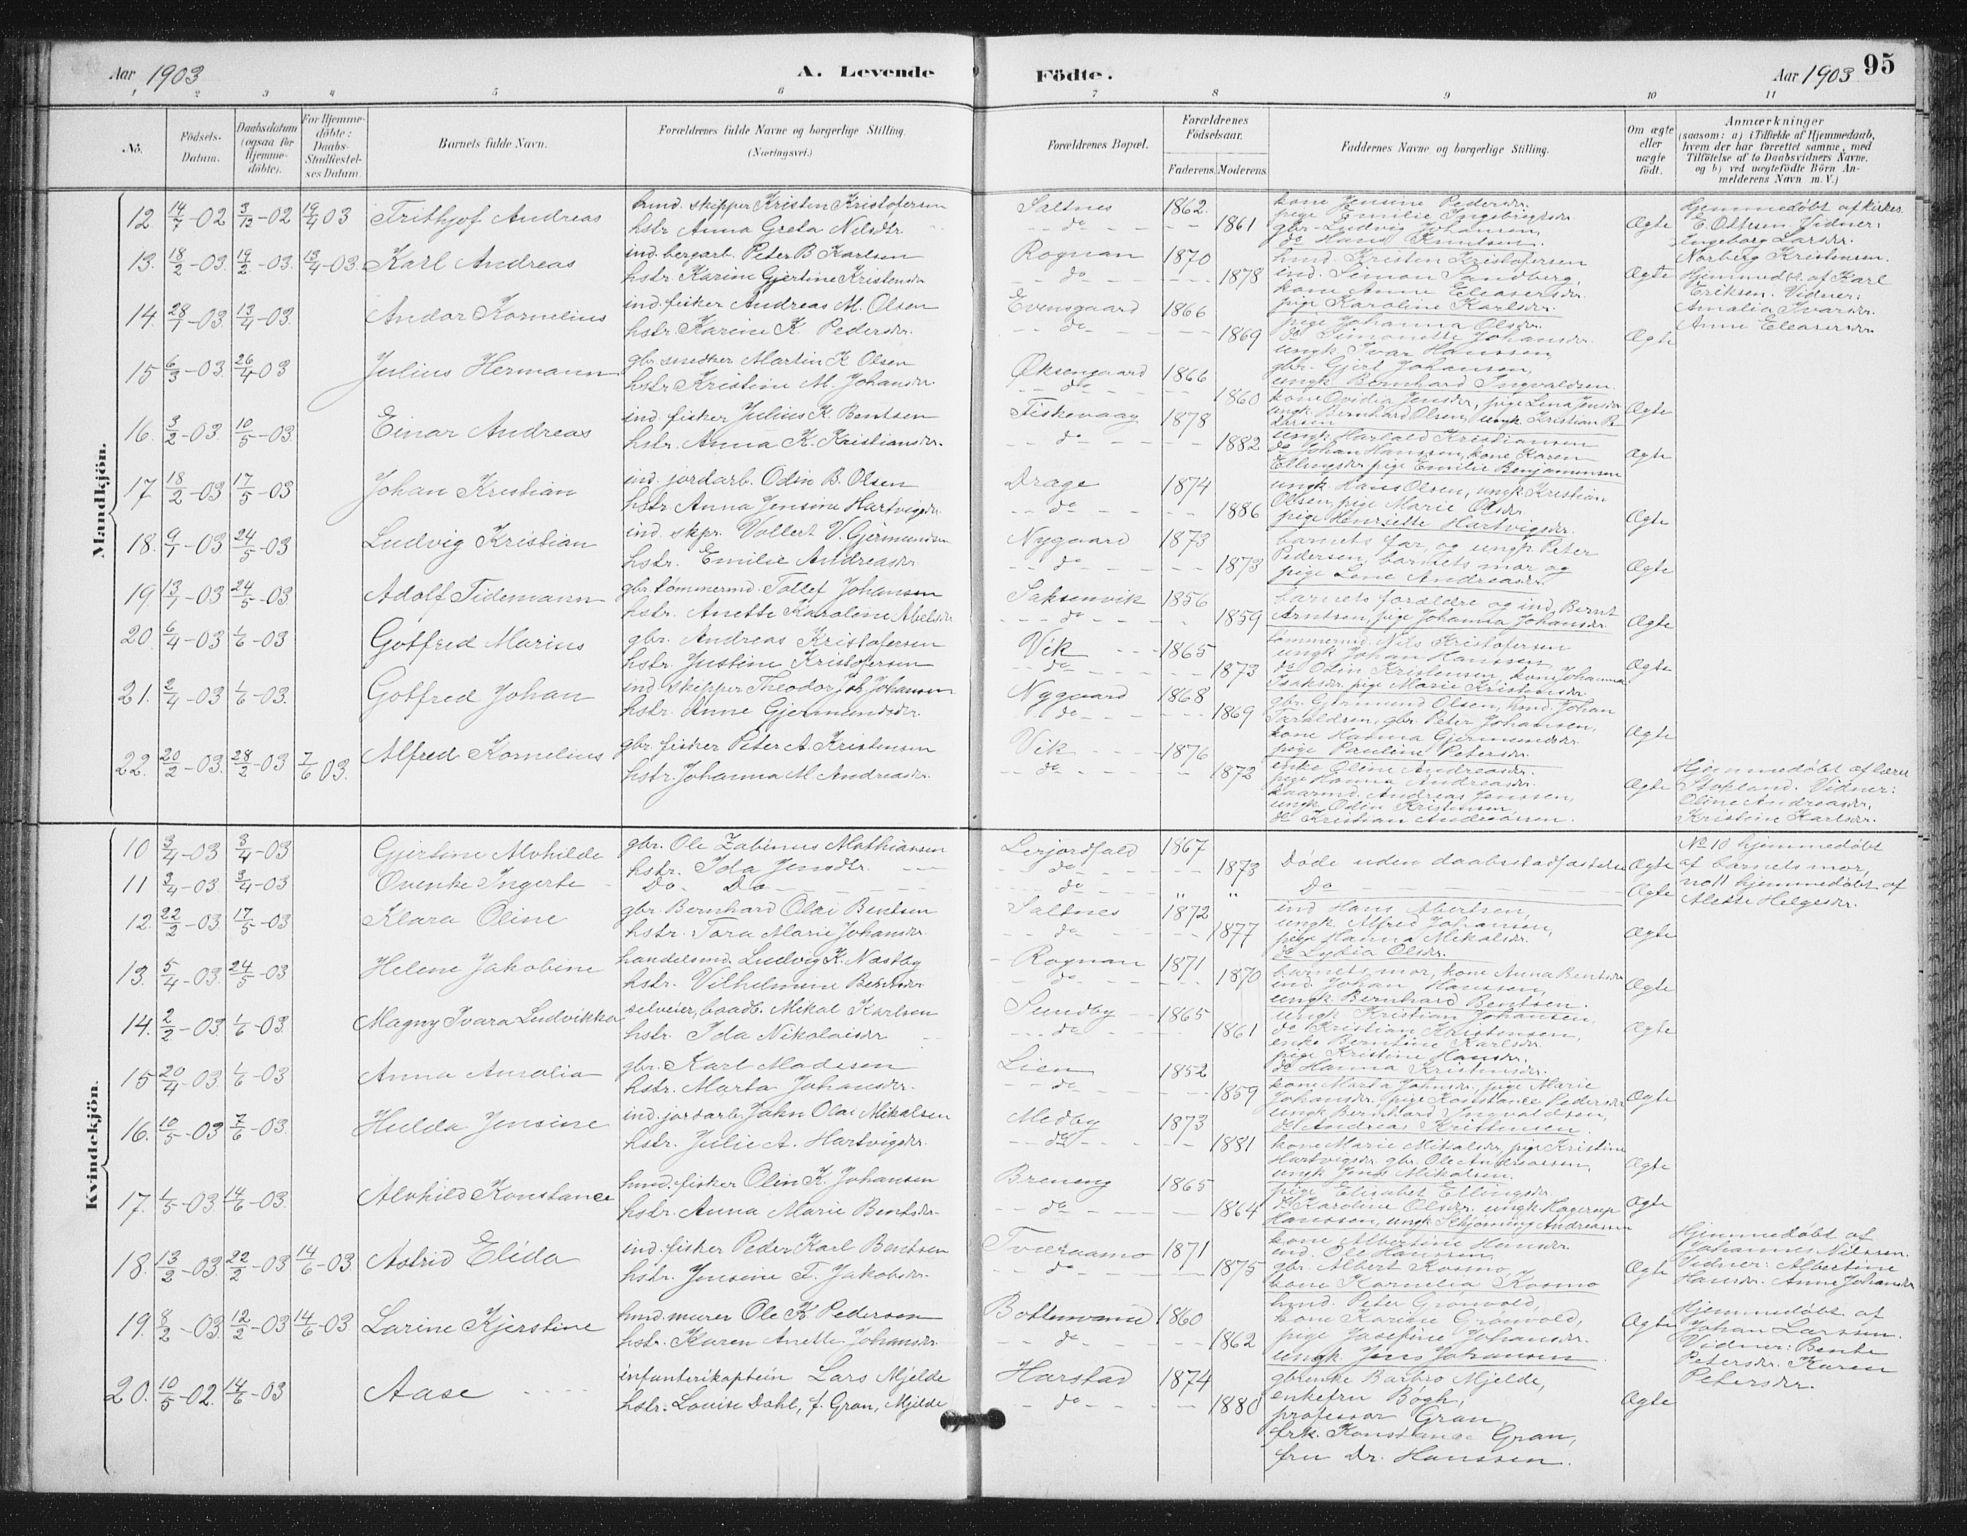 Aar 1903
A. Levende
Födte.
Aar 1903
95
1 2 3 4 5 6 7 8 9 10 11
No.
Födsels-
Datum.
Daabsdatum
(ogsaa for
Hjemme-
döbte).
For Hjemme-
döbte:
Daabs-
Stadfæstel-
ses Datum.
Barnets fulde Navn.
Forældrenes fulde Navne og borgerlige Stilling.
(Næringsvei.)
Forældrenes Bopæl.
Forældrenes
Födselsaar.
Faderens.
Moderens.
Faddernes Navne og borgerlige Stilling.
Om ægte
eller
uægte
födt.
Anmærkninger
(saasom: a) i Tilfælde af Hjemmedaab,
hvem der har forrettet samme, med
Tilföielse af to Daabsvidners Navne.
og b) ved uægtefödte Börn An-
melderens Navn m. V.)
Mandkjön.
12 14/7-02 3/12-02 19/4 03 Frithjof Andreas
hmd. skipper Kristen Kristofersen
hstr Anna Greta Nilsdtr
Saltnes 1862
do 1861
kone Jensine Pedersdr.
pige Emilie Ingebrigtsdr.
gbr. Ludvig Johansen,
do Hans Knutsen.
Ægte
Hjemmedøbt af kirkes.
E. Olsen. Vidner:
Ingeborg Larsdr.
Norberg Kristensen.
13. 18/2-03. 19/2-03. 13/4-03. Karl Andreas
ind. bergarb. Peter B Karlsen
hstr. Karine Gjertine Kristensdr
Rognan 1870
do 1878
hmd. Kristen Kristofersen
ind. Simon Sandberg,
kone Anne Eleasersdr.
pige Karoline Karlsdr.
Ægte
Hjemmedøbt af Karl
Eriksen. Vidner:
Amalia Ivarsdr.
Anne Eleasersdr.
14. 28/1-03 13/4-03. Andor Kornelius
ind. fisker Andreas M. Olsen
hstr. Karine K Pedersdr.
Evensgaard 1866
do 1869
pige Johanna Olsdr.
do Simonette Johansdr.
ungk. Ivar Hanssen
Ægte
15 6/3-03. 26/4 03 Julius Hermann
gbr. snedker Martin K Olsen
hstr Kristine M. Johansdr.
Øksengaard 1866
do 1860
gbr. Gjert Johansen,
ungk. Bernhard Ingvaldsen.
kone Ovidia Jensdr., pige Lina Jensdr
Ægte
16. 3/2-03. 10/5-03. Einar Andreas
ind. fisker Julius K. Bentsen
hstr. Anna K. Kristiansdr.
Fiskevaag 1878
do 1882
ungk. Bernhard Olsen, ungk. Kristian B
Larsen
ungk. Harald Kristiansen
do Johan Hanssen, kone Karen
Ellingsdr. pige Emilie Benjaminsen
Ægte
17 18/2-03 17/5-03 Johan Kristian
ind. jordarb. Odin B. Olsen
hstr. Anna Jensine Hartvigsdr.
Drage 1874
do 1886
ungk Hans Olsen, ungk Kristian
Olsen, pige Marie Olsdr
pige Henriette Hartvigsdr.
Ægte
18. 9/1-03 24/5-03 Ludvig Kristian
ind. skpr. Vollert V. Gjermundsen
hstr. Emilie Andreasdr.
Nygaard 1873
do 1873
barnets far, og ungk. Peter
Pedersen, barnets mor og
pige Lene Andreasdr.
Ægte
19. 13/1-03 24/5-03 Adolf Tidemann
gbr. tømmermd. Tollef Johansen
hstr. Anette Karoline Abelsdr
Saksenvik 1856
do 1859
barnets forældre og ind. Bernt
Arntsen, pige Johanna Johansdr.
Ægte
20. 6/4-03 1/6-03. Gotfred Marius
gbr. Andreas Kristofersen
hstr. Justine Kristofersen
Vik 1865
do 1873
tømmermd. Nils Kristofersen
ungk. Johan Hanssen,
do Odin Kristensen, kone Johanna
Isaksdr., pige Marie Kristensdr.
Ægte
21. 2/4-03 1/6-03. Gotfred Johan
ind. skipper Theodor Joh Johansen
hstr. Anne Gjermundsdr.
Nygaard 1868
do 1869
gbr. Gjermund Olsen, hmd. Johan
Taraldsen, gbr. Peter Johansen,
kone Hanna Gjermundsdr.
pige Pauline Petersdr.
Ægte
22. 20/2-03. 28/2-03 7/6 03. Alfred Kornelius
gbr. fisker Peter A. Kristensen
hstr. Johanna M. Andreasdr.
Vik 1876
do 1872
enke Oline Andreasdr.
pige Hanna Andreasdr.
Andreas Jenssen,
ungk. Odin Kristensen,
do Kristian Andreassen.
Ægte
Hjemmedøbt af lærer
Stopland. Vidner:
Oline Andreasdr.
Kristine Karlsdr.
Kvindekjön.
10 3/4-03 3/4-03 Gjertine Alvhilde
gbr. Ole Zabinus Mathiassen
hstr. Ida Jensdtr.
Leirjordfald 1867
do 1873
Døde uden daabsstadfæstelse
Ægte
No 10 hjemmedøbt
af barnets mor,
11 3/4-03. 3/4-03 Ovenke Ingerte
Do Do
do " "
Do
Ægte
no 11 hjemmedøbt af
Alette Helgesdr.
12. 22/2-03. 17/5-03 Klara Oline
gbr. Bernhard Olai Bentsen
hstr. Tora Marie Johansdr.
Saltnes 1872
do 1877
ind Hans Abertsen,
ungk Alfred Johansen,
pige Hanna Mikalsdr.
do Lydia Olsdr.
Ægte
13. 5/4-03. 24/5-03 Helene Jakobine
handelsmd. Ludvig K. Næstby
hstr. Vilhelmine Berntsdr
Rognan 1871
do 1870
barnets mor, kone Anna Bentsdr
ind. Johan Hanssen,
ungk. Bernhard Bentsen.
Ægte
14. 2/2-03 1/6-03. Magny Ivara Ludvikka
selveier, baadb. Mikal Karlsen
hstr. Ida Nikolaisdr
Sundby 1865
do 1861
ungk Kristian Johansen,
do Kristian Kristensen,
enke Berntine Karlsdr.
pige Kristine Hansdr.
do Hanna Kristensdr.
Ægte
15 20/4-03. 1/6-03 Anna Amalia
gbr. Karl Madssen
hstr. Marta Johansdr.
Lien 1852
do 1859
kone Marta Johnsdr., pige Marie
Johansdr., pige Konstanse Pedersdr
ungk Bernhard Ingvaldsen,
do Andreas Kristensen.
Ægte
16. 10/5-03 7/6-03. Hulda Jensine
ind. jordarb. John Olai Mikalsen
hstr. Julie A. Hartvigsdr.
Medby 1873
do 1881
kone Marie Mikalsdr., pige Kristine
Hartvigsdr. gbr. Ole Andreassen,
ungk Jens Mikalsen.
Ægte
17. 1/5-03 14/6-03. Alvhild Konstance
hmd. fisker Olin K. Johansen
hstr. Anna Marie Bentsdr.
Breneng 1865
do 1864
pige Elisabet Ellingsdr.
do Karoline Olsdr. ungk Hagerup
Hanssen, ungk Schjøning Andreassen
Ægte
18. 13/2-03. 22/2-03 14/6-03 Astrid Elida
ind. fisker Peder Karl Bentsen
hstr. Jensine F. Jakobsdr.
Tveraamo 1871
do 1875
kone Albertine Hansdr.
ind. Ole Hanssen,
gbr. Albert Kosmo
kone Kornelia Kosmo
Ægte
Hjemmedøbt af
Johannes Nilssen.
Vidner: Albertine
Hansdr. Anne Johansdr
19. 8/2-03. 12/2-03 14/6-03 Larine Kjerstine
hmd. murer Ole K Pedersen
hstr. Karen Anette Johansdr.
Bottenvand 1860
do 1862
hmd. Peter Grønvold,
kone Karine Grønvold,
pige Josefine Johansdr.
ungk. Jens Johansen
Ægte
Hjemmedøbt af
Johan Larssen.
Vidner: Bente
Petersdr. Karen
Petersdr.
20. 10/5-02. 14/6-03 Aase
infanterikaptein Lars Mjelde
hstr. Louise Dahl, f. Gran, Mjelde
Harstad 1874
do 1880
gbrenke Barbro Mjelde,
enkefru Bøgh,
professor Gran,
frk. Konstance Gran,
fru Dr. Hanssen.
Ægte